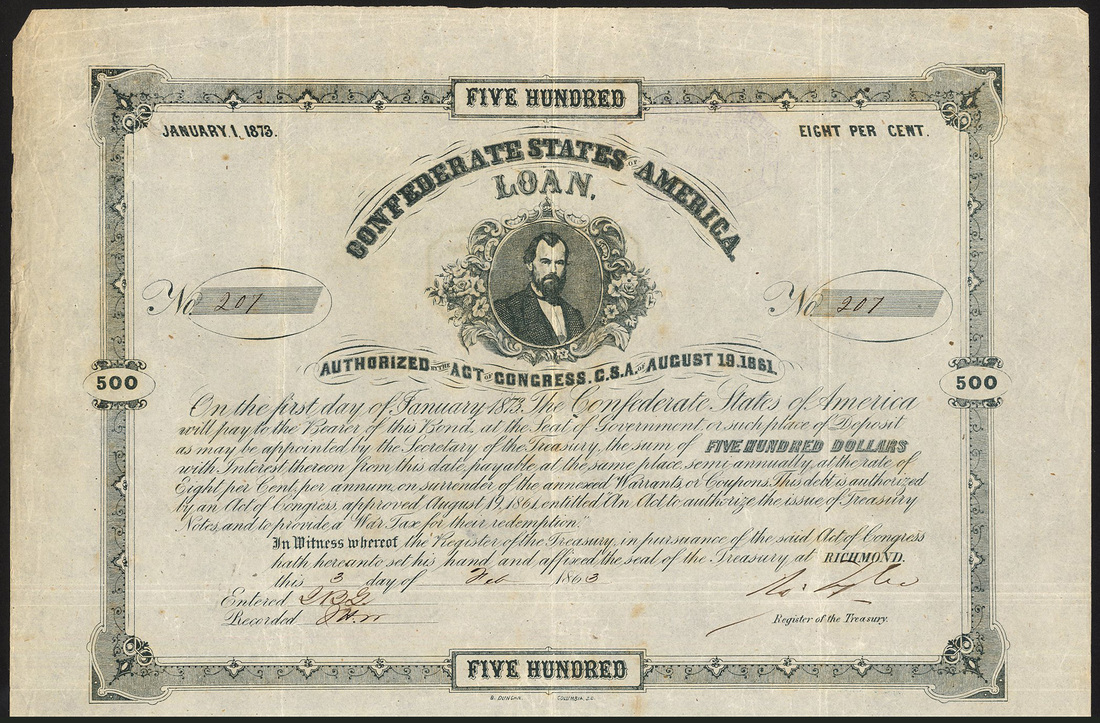 FIVE HUNDRED
JANUARY 1, 1873.
EIGHT PER CENT.
CONFEDERATE STATES OF AMERICA
LOAN.
No 207
No 207
AUTHORIZED BY THE ACT OF CONGRESS. C.S.A. OF AUGUST 19. 1861.
500
500
On the first day of January 1873, The Confederate States of America
will pay to the Bearer of this Bond, at the Seat of Government, or such place of Deposit
as may be appointed by the Secretary of the Treasury, the sum of FIVE HUNDRED DOLLARS
with Interest thereon from this date, payable at the same place, semi-annually, at the rate of
Eight per Cent, per annum, on surrender of the annexed Warrants, or Coupons. This debt is authorized
by an Act of Congress, approved August 19, 1861, entitled "An Act, to authorize the issue of Treasury
Notes, and to provide a War Tax for their redemption."
In Witness whereof the Register of the Treasury, in pursuance of the said Act of Congress
hath hereunto set his hand, and affixed the seal of the Treasury at RICHMOND.
this 3 day of Feb 1863
Entered
Recorded
Register of the Treasury.
FIVE HUNDRED
B. DUNCAN. COLUMBIA. S.C.